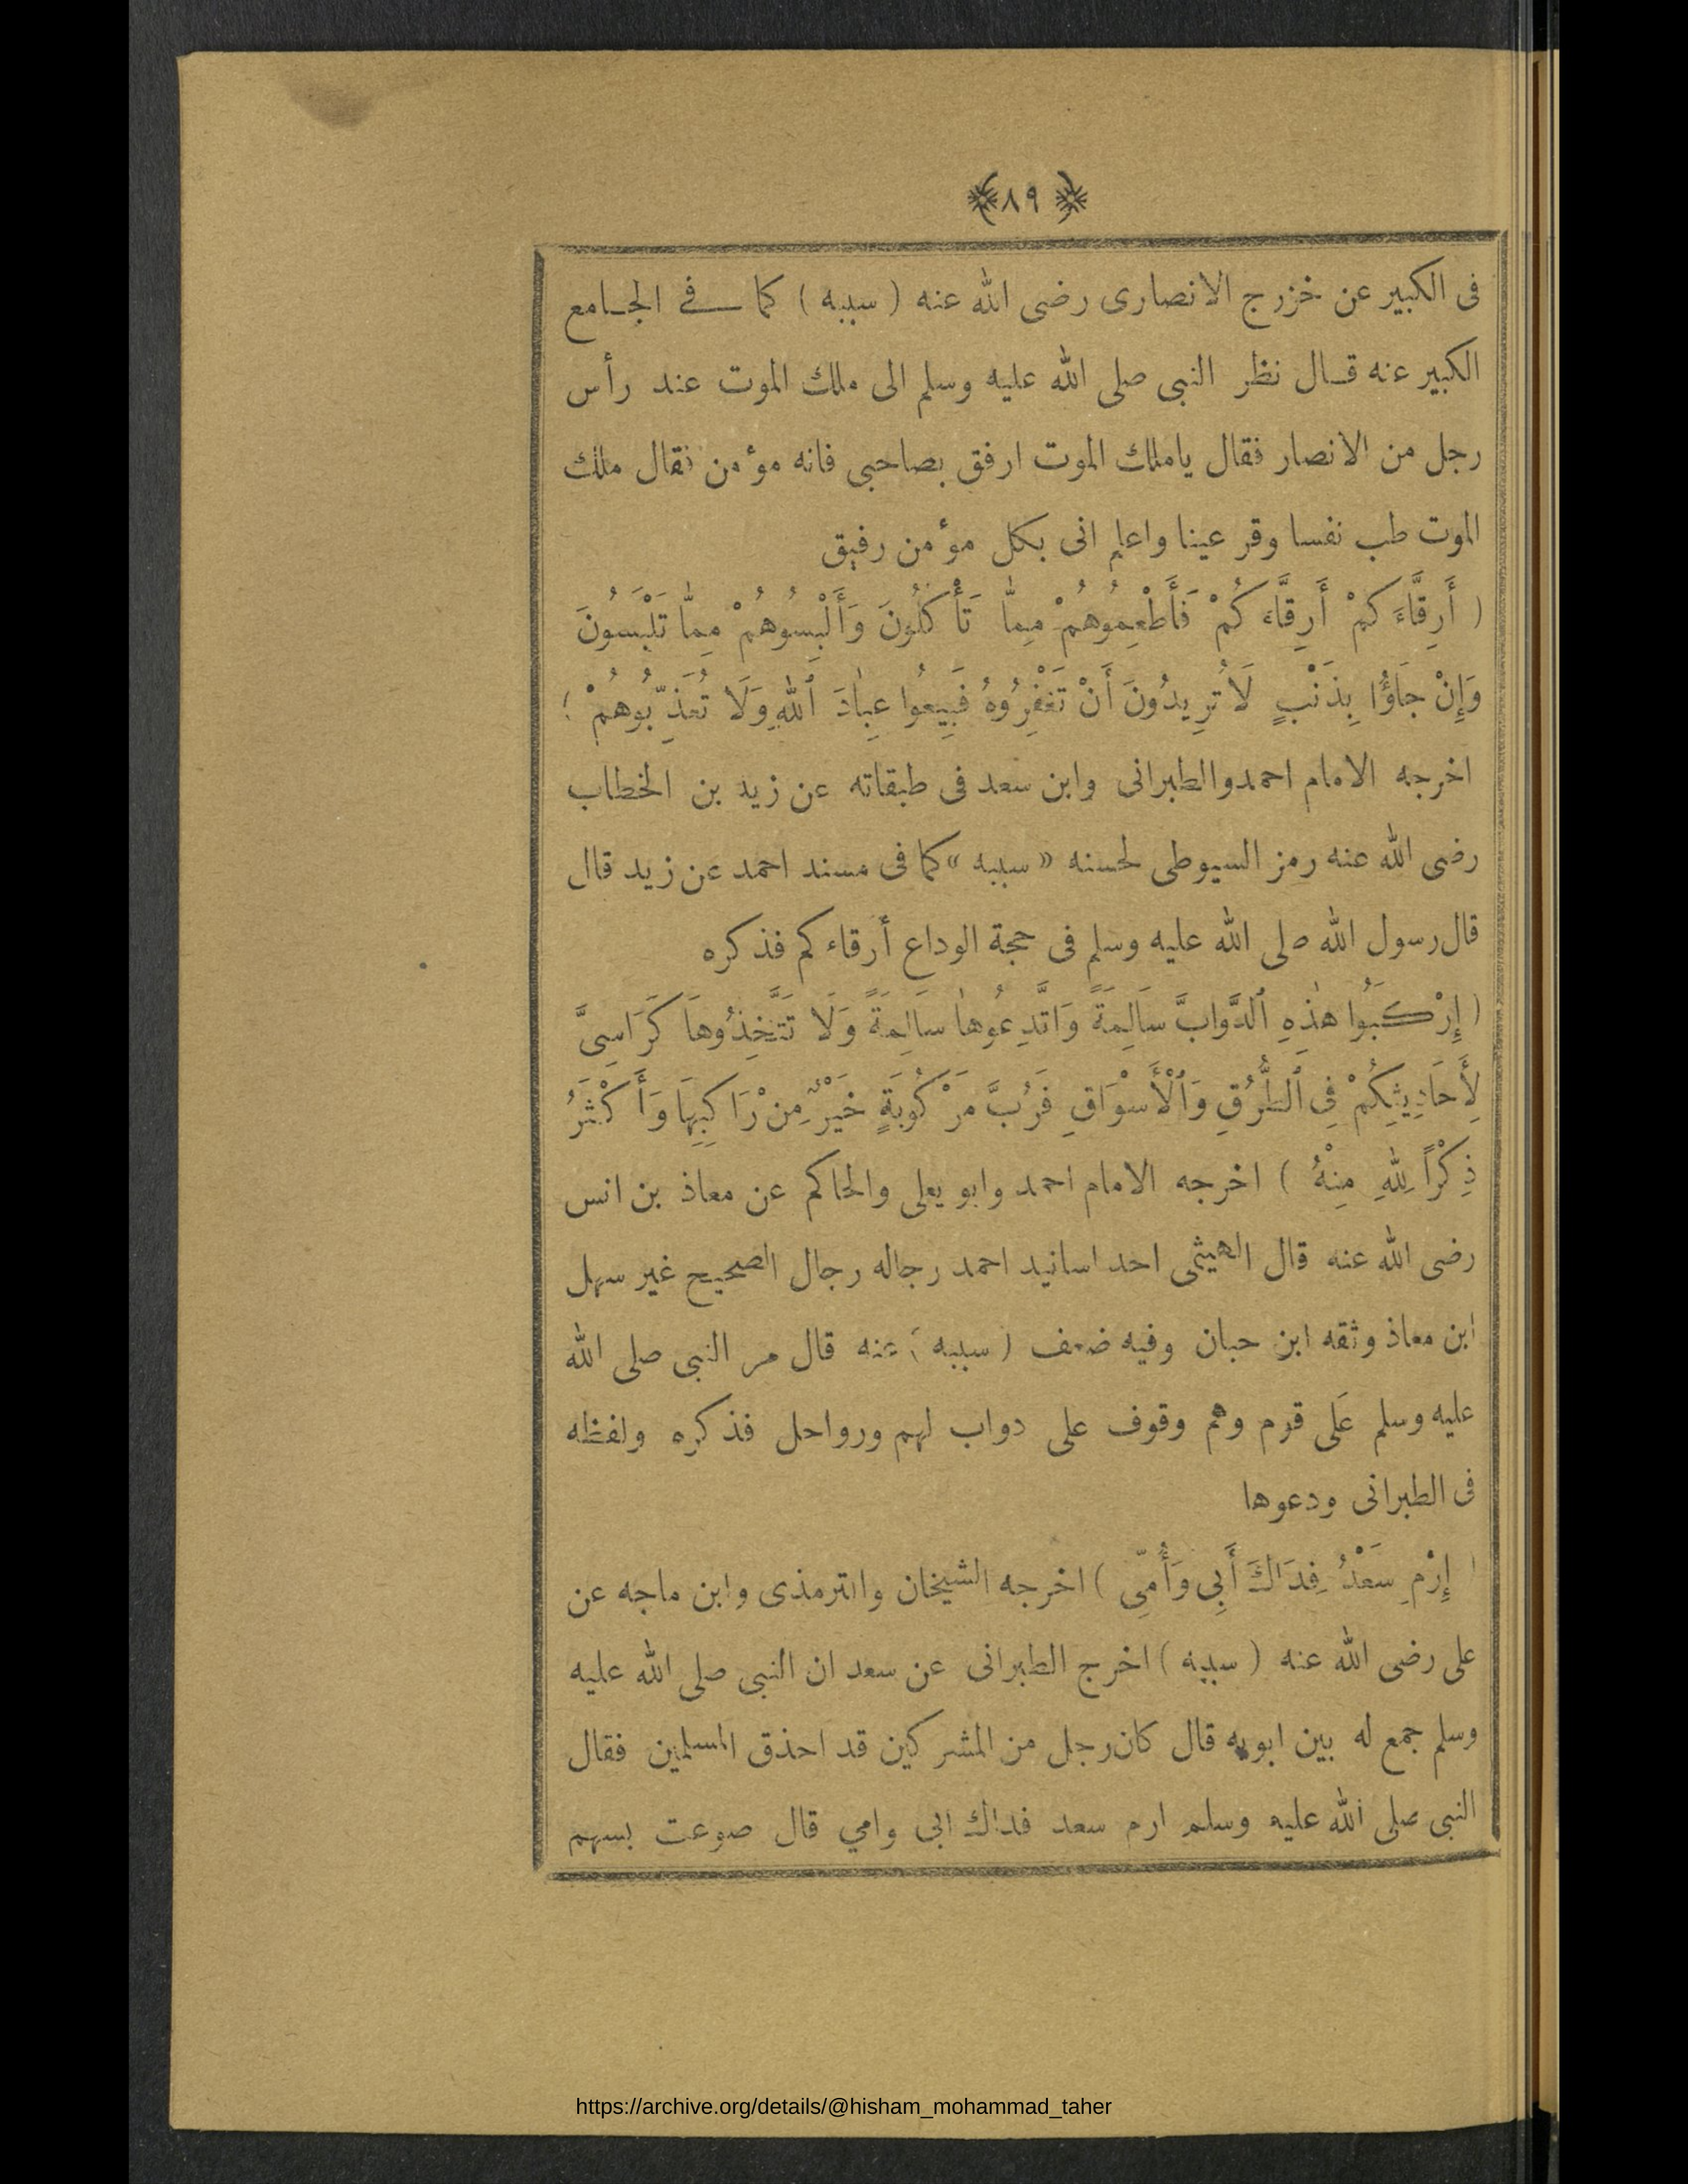 ﴿ ٨٩ ﴾
فى الكبير عن خزرج الانصارى رضى الله عنه ( سببه ) كما فى الجامع
الكبير عنه قال نظر النبى صلى الله عليه وسلم الى ملك الموت عند رأس
رجل من الانصار فقال ياملك الموت ارفق بصاحبى فانه مؤمن فقال ملك
الموت طب نفسا وقر عينا واعلم انى بكل مؤمن رفيق
( أَرِقَّاءَكُمْ أَرِقَّاءَكُمْ فَأَطْعِمُوهُمْ مِمَّا تَأْكُلُونَ وَأَلْبِسُوهُمْ مِمَّا تَلْبَسُونَ
وَإِنْ جَاؤُا بِذَنْبٍ لَا تُرِيدُونَ أَنْ تَغْفِرُوهُ فَبِيعُوا عِبَادَ ٱللهِ وَلَا تُعَذِّبُوهُمْ )
اخرجه الامام احمد والطبرانى وابن سعد فى طبقاته عن زيد بن الخطاب
رضى الله عنه رمز السيوطى لحسنه « سببه » كما فى مسند احمد عن زيد قال
قال رسول الله صلى الله عليه وسلم فى حجة الوداع أرقاءكم فذكره
( إِرْكَبُوا هٰذِهِ ٱلدَّوَابَّ سَالِمَةً وَاتَّدِعُوهَا سَالِمَةً وَلَا تَتَّخِذُوهَا كَرَاسِيَّ
لِأَحَادِيثِكُمْ فِى ٱلطُّرُقِ وَٱلْأَسْوَاقِ فَرُبَّ مَرْكُوبَةٍ خَيْرٌ مِنْ رَاكِبِهَا وَأَكْثَرُ
ذِكْرًا لِلّٰهِ مِنْهُ ) اخرجه الامام احمد وابو يعلى والحاكم عن معاذ بن انس
رضى الله عنه قال الهيثمى احد اسانيد احمد رجاله رجال الصحيح غير سهل
ابن معاذ وثقه ابن حبان وفيه ضعف ( سببه ) عنه قال مر النبى صلى الله
عليه وسلم عَلى قوم وهم وقوف على دواب لهم ورواحل فذكره ولفظه
فى الطبرانى ودعوها
( إِرْمِ سَعْدُ فِدَاكَ أَبِى وَأُمِّى ) اخرجه الشيخان والترمذى وابن ماجه عن
على رضى الله عنه ( سببه ) اخرج الطبرانى عن سعد ان النبى صلى الله عليه
وسلم جمع له بين ابويه قال كان رجل من المشركين قد احذق المسلمين فقال
النبى صلى الله عليه وسلم ارم سعد فداك ابى وامي قال صوعت بسهم
https://archive.org/details/@hisham_mohammad_taher